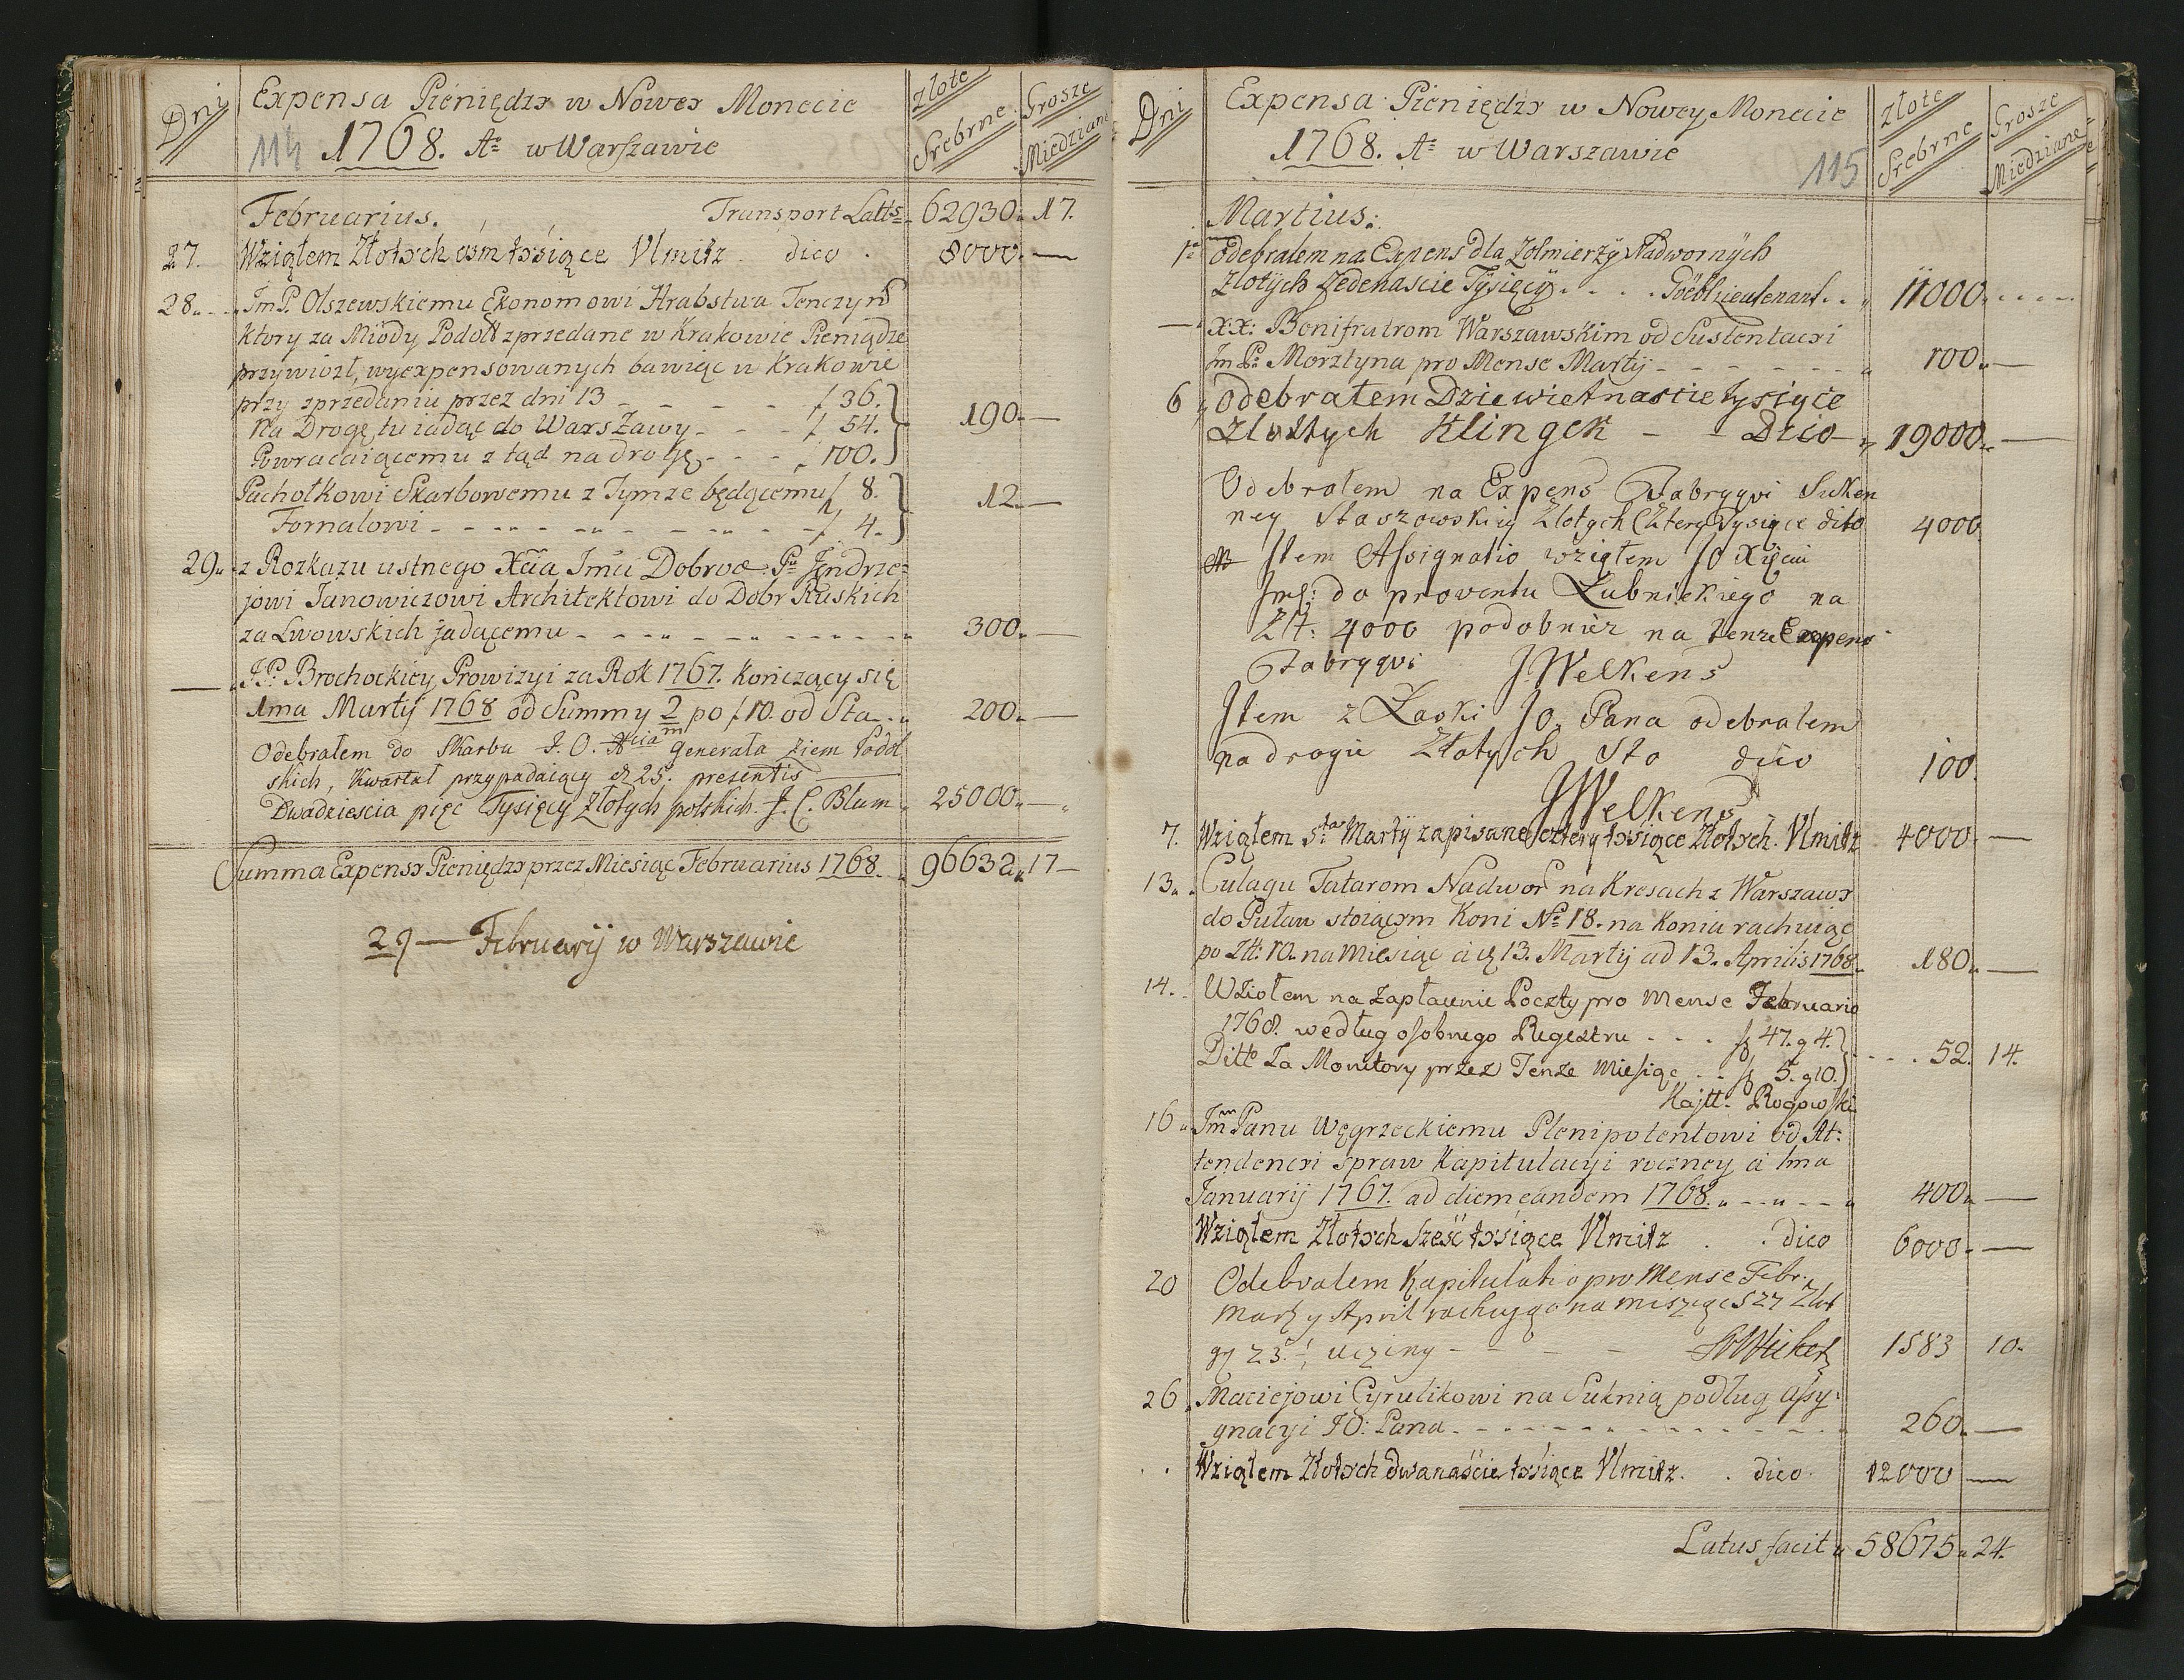 Dni
Expensa Pieniędzy w Nowey Monecie
114 1768. Ao w Warszawie
Złote Srebrne
Grosze Miedziane
Februarius. Transport Latts 62930. 17.
27. Wziąłem Złotych óśm tysiące Vlmitz dico 8000. —
28. ImP. Olszewskiemu Ekonomowi Hrabstwa Tenczyń
ktory za Miody Podoll zprzedane w Krakowie Pieniądze
przywiozł, wyexpensowanych bawiąc w Krakowie
przy zprzedaniu przez dni 13 - - - f 36.
Na Drogę tu iadąc do Warszawy - - - f 54. 190. —
Powracaiącemu z tąd na drogę - - - 100.
Pachołkowi Skarbowemu z Tymze będącemu f 8. 12. —
Fornalowi - - - - - - f 4.
29. z Rozkazu ustnego Xcia Imci Dobroo. Pu Jendrze=
jowi Janowiczowi Architektowi do Dobr Ruskich
za Lwowskich jadącemu - - - - - 300. —
— JP. Brochockiey Prowizyi za Rok 1767. kończący się
1ma Martij 1768 od Summy 2m po f 10. od Sta 200. —
Odebrałem do Skarbu J. O. Xcia Generała Ziem Podol
skich, Kwartał przypadaiący d 25. presentis
Dwadziescia pięc Tysięcy Złotych polskich J. C. Blum 25000. —
Summa Expensy Pieniędzy przez Miesiąc Februarius 1768. 96632. 17 —
29 — Februarij w Warszawie
Dni
Expensa Pieniędzy w Nowey Monecie
1768. Ao w Warszawie 115
Złote Srebrne
Grosze Miedziane
Martius.
1a odebralem na Expens dla Zolmierzÿ Nadwornÿch
Zlotÿch Jedenascie Tÿsięcÿ . . . . Göebl Lieutenant . . 11000 . . . . .
— XX: Bonifratrom Warszawskim od Sustentacyi
Im Pa Morztyna pro Mense Martij - - - - - 100. —
6 odebrałem Dziewietnascie tysiące
Zlottych Klingek - - Dico 19000. —
Odebrałem na Expens Fabryqvi Suken
ney Staszowskiey Zlotych Cztery Tysiące dito 4000
Item Assignatio wziąłem JO Xięcia
Jmć: do proventu Łubnickiego na
Złt: 4000 podobnież na tenze Expens
Fabryqvi J. Welkens
Item z Łaski JO. Pana odebrałem
na drogie Złotych Sto dico 100.
JWelkens
7. Wziąłem 5ta Martÿ zapisane cztery tysiące Złotych. Vlmitz 4000. —
13. Culagu Tatarom Nadwor na Kresach z Warszawy
do Puław stoiącym Koni No 18. na Konia rachuiąc
po Zł: 10. na Miesiąc a d 13. Martij ad 13. Aprilis 1768. 180. —
14. Wziołem na zapłacenie Poczty pro Mense Februario
1768. według osobnego Regestru . . . f 47. g 4.
Ditto Za Monitory przez Tenze Miesiąc . . f 5. g 10. . . . . 52. 14.
Kajtt. Rogowski
16. Im Panu Węgrzeckiemu Plenipotentowi od At:
tendencyi spraw Kapitulacyi roczney a 1ma
Januarij 1767. ad diem eandem 1768. - - - 400. —
Wziąłem Złotych Sześć tysiące Vlmitz . . dico 6000. —
20 Odebrałem Kapitulatio pro Mense Febr.
Mart y April rachując na miesząc 527 Złot
gr 23 1/3 uczyny - - - - 1583 10.
26. Maciejowi Cyrulikowi na Suknią podług Assy:
gnacyi JO: Pana - - - - - - 260. —
. . Wziąłem Złotych dwanaście tysiące Vlmitz. . dico. 12000 —
Latus facit 58675. 24.